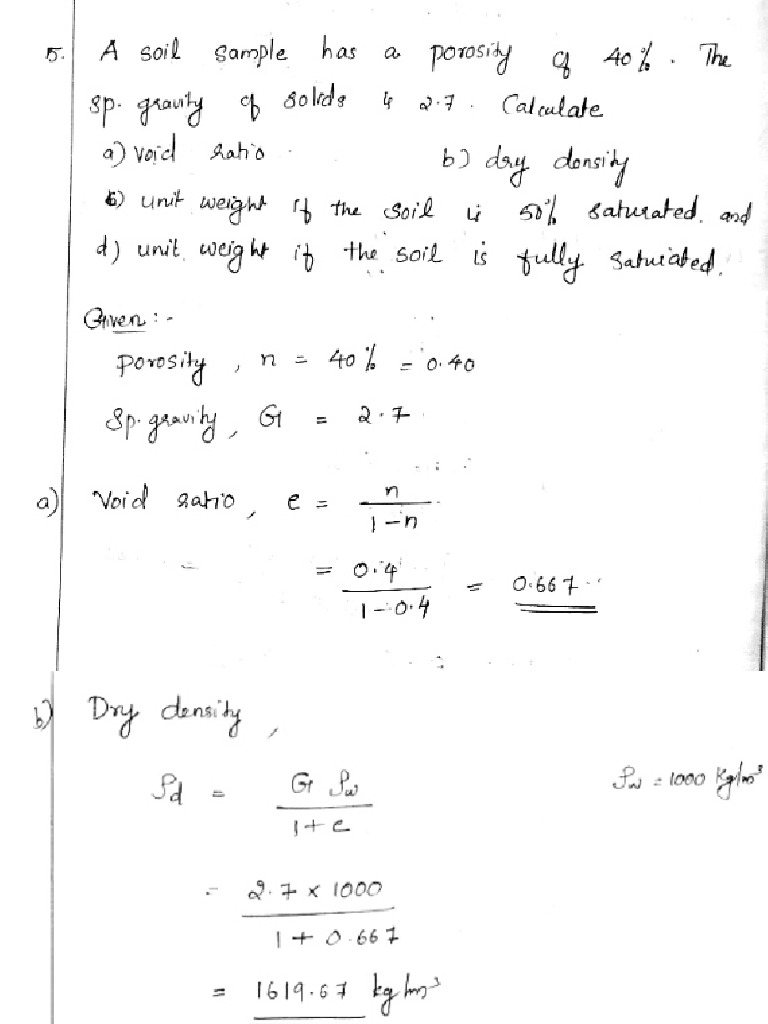 5. A soil sample has a porosity of 40%. The
sp. gravity of solids is 2.7. Calculate
a) void ratio b) dry density
c) unit weight if the soil is 50% saturated. and
d) unit weight if the soil is fully saturated.
Given :-
porosity, n = 40% = 0.40
Sp. gravity, G = 2.7
a) Void ratio, e = n / 1-n
= 0.4 / 1-0.4 = 0.667
b) Dry density,
ρd = G ρw / 1+e ρw = 1000 kg/m³
= 2.7 × 1000 / 1 + 0.667
= 1619.67 kg/m³